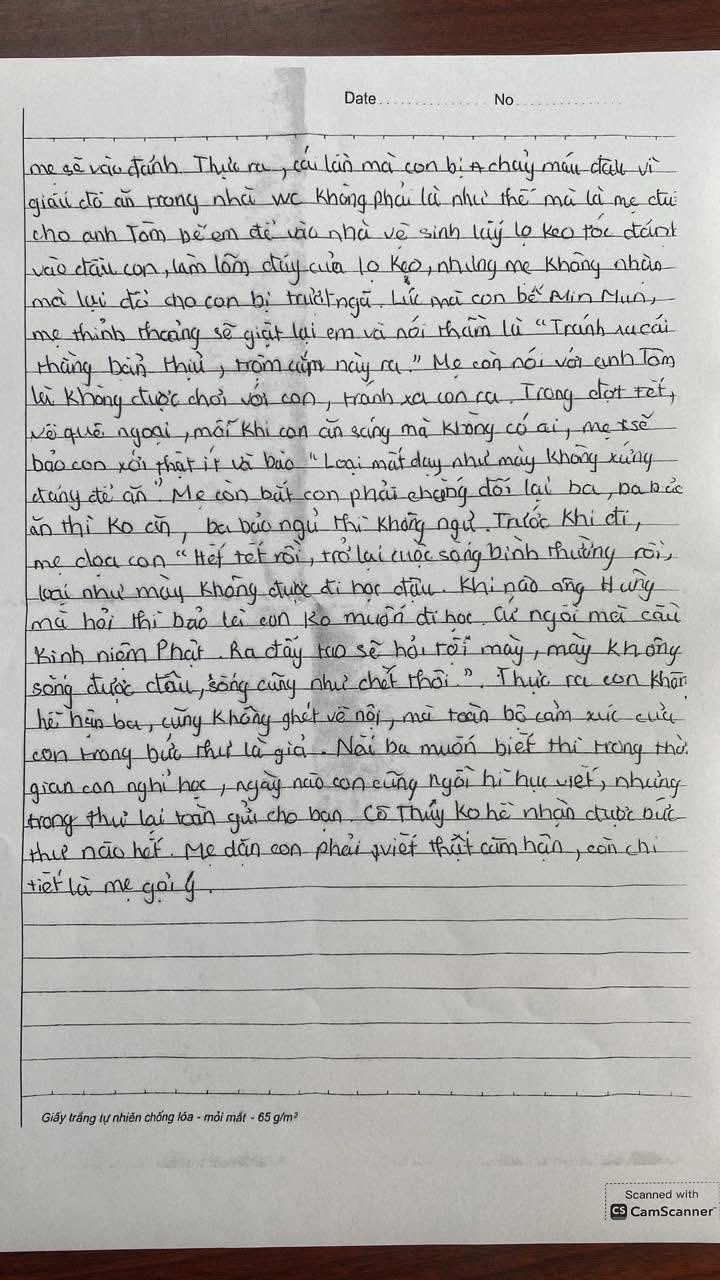 Date No
mẹ sẽ vào đánh. Thực ra, cái lần mà con bị chảy máu đầu vì
giấu đồ ăn trong nhà wc không phải là như thế mà là mẹ đưa
cho anh Tôm bế em để vào nhà vệ sinh lấy lọ keo tóc đánh
vào đầu con, làm lõm đáy của lọ keo, nhưng mẹ không nhận
mà lại đổ cho con bị trượt ngã. Lúc mà con bế Min Mun,
mẹ thỉnh thoảng sẽ giật lại em và nói thầm là "Tránh xa cái
thằng bẩn thỉu, trộm cắp này ra." Mẹ còn nói với anh Tôm
là không được chơi với con, tránh xa con ra. Trong đợt tết,
về quê ngoại, mỗi khi con ăn sáng mà không có ai, mẹ sẽ
bảo con xới thật ít và bảo "Loại mất dạy như mày không xứng
đáng để ăn". Mẹ còn bắt con phải chống đối lại ba, ba bảo
ăn thì ko ăn, ba bảo ngủ thì không ngủ. Trước khi đi,
mẹ dọa con "Hết tết rồi, trở lại cuộc sống bình thường rồi,
loại như mày không được đi học đâu. Khi nào ông Hưng
mà hỏi thì bảo là con ko muốn đi học. Cứ ngồi mà cầu
kinh niệm Phật. Ra đấy tao sẽ hỏi tội mày, mày không
sống được đâu, sống cũng như chết thôi.". Thực ra con không
hề hận ba, cũng không ghét về nội, mà toàn bộ cảm xúc của
con trong bức thư là giả. Nài ba muốn biết thì trong thời
gian con nghỉ học, ngày nào con cũng ngồi hì hục viết, nhưng
trong thư lại toàn gửi cho bạn. Cô Thủy ko hề nhận được bức
thư nào hết. Mẹ dặn con phải viết thật căm hận, còn chi
tiết là mẹ gợi ý.
Giấy trắng tự nhiên chống lóa - mỏi mắt - 65 g/m²
Scanned with
CS CamScanner